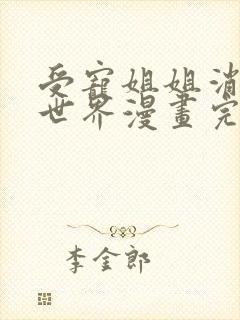 受寵姐姐消
世界漫畫完
李金郎